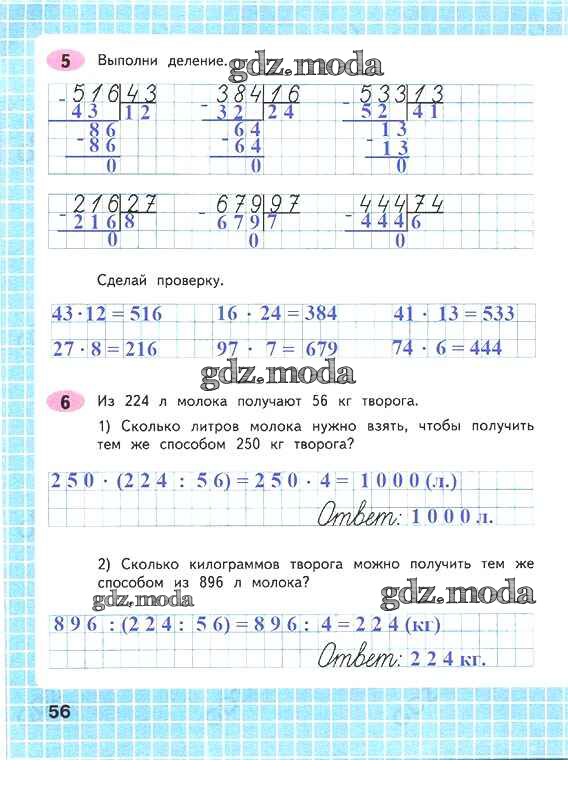 5 Выполни деление. gdz.moda
516 43 384 16 533 13
- 43 12 - 32 24 - 52 41
86 64 13
- 86 - 64 - 13
0 0 0
216 27 679 97 444 74
- 216 8 - 679 7 - 444 6
0 0 0
Сделай проверку.
43 · 12 = 516 16 · 24 = 384 41 · 13 = 533
27 · 8 = 216 97 · 7 = 679 74 · 6 = 444
gdz.moda
6 Из 224 л молока получают 56 кг творога.
1) Сколько литров молока нужно взять, чтобы получить
тем же способом 250 кг творога?
250 · (224 : 56) = 250 · 4 = 1000 (л.)
Ответ: 1000 л.
2) Сколько килограммов творога можно получить тем же
способом из 896 л молока?
gdz.moda gdz.moda
896 : (224 : 56) = 896 : 4 = 224 (кг)
Ответ: 224 кг.
56